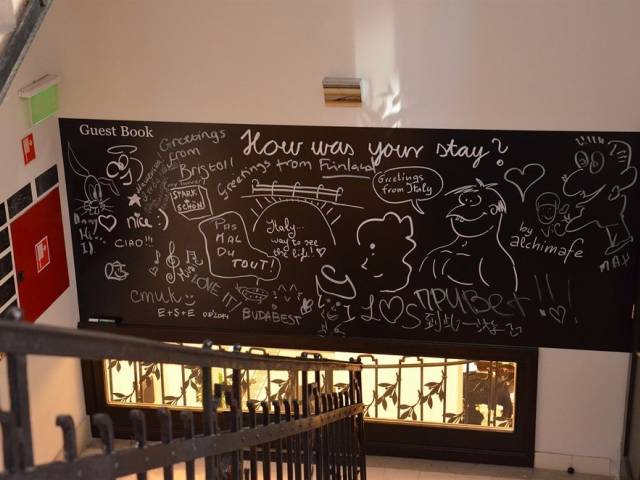 Guest Book
How was your stay?
Greetings
from
Bristol!
Greetings from Finland
STARK
SCHÖN
Greetings
from Italy
nice :)
CIAO!!!
PAS
MAL
DU
TOUT!
Italy...
way to see
the life!
by
alchimafe
MAX
LOVE IT!
cmuk
E+S+E 08/2014
BUDABEST
L♡S
ПРИВет!!!
到此一